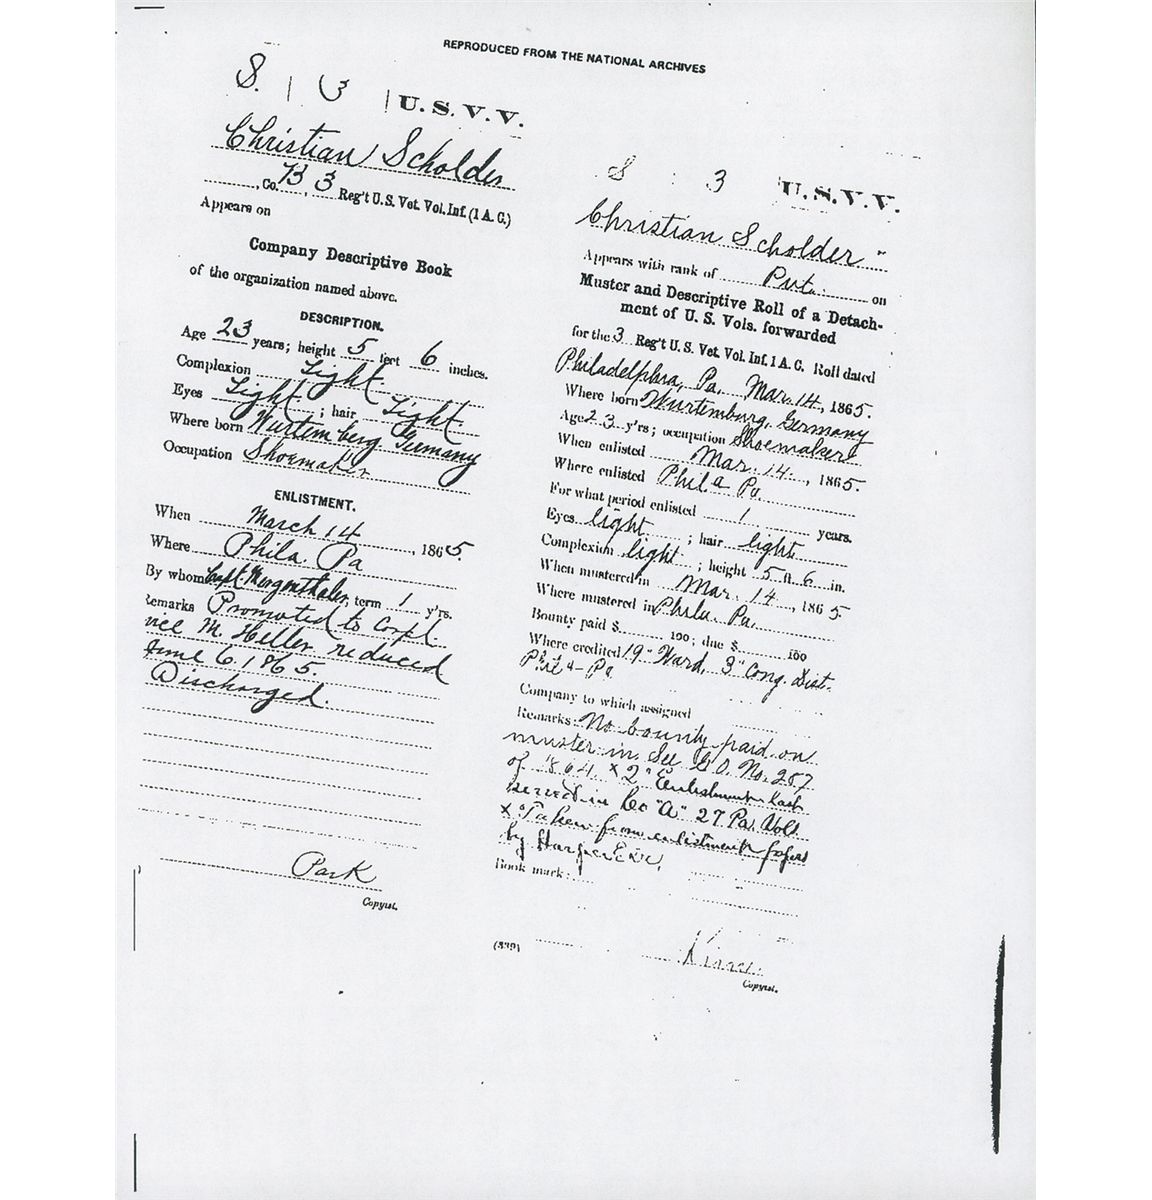 REPRODUCED FROM THE NATIONAL ARCHIVES
S. | 3 | U.S.V.V.
Christian Scholder
, Co. B, 3 Reg't U.S. Vet. Vol. Inf. (1 A.C.)
Appears on
Company Descriptive Book
of the organization named above.
DESCRIPTION.
Age 23 years; height 5 feet 6 inches.
Complexion Light
Eyes Light; hair Light
Where born Wurtemberg Germany
Occupation Shoemaker
ENLISTMENT.
When March 14, 1865
Where Phila. Pa
By whom Capt. Mergenthaler, term 1 y'rs.
Remarks Promoted to Corpl.
vice M. Heller reduced
June 6, 1865.
Discharged.
Park
Copyist.
S 3 U.S.V.V.
Christian Scholder
Appears with rank of Pvt. on
Muster and Descriptive Roll of a Detach-
ment of U. S. Vols. forwarded
for the 3 Reg't U.S. Vet. Vol. Inf. 1 A.C. Roll dated
Philadelphia, Pa. Mar. 14, 1865.
Where born Wurtemburg, Germany
Age 23 y'rs; occupation Shoemaker
When enlisted Mar. 14, 1865.
Where enlisted Phila Pa.
For what period enlisted 1 years.
Eyes light; hair light
Complexion light; height 5 ft. 6 in.
When mustered in Mar. 14, 1865.
Where mustered in Phila. Pa.
Bounty paid $ 100; due $ 100
Where credited 19" Ward, 3" Cong. Dist.
Phila - Pa
Company to which assigned
Remarks: No bounty paid on
muster in. See G.O. No. 287
of 1864. x 2" Enlistment last
served in Co "A" 27 Pa Vols
x Taken from enlistment papers
by Harper Exr.
Book mark:
(339)
Copyist.